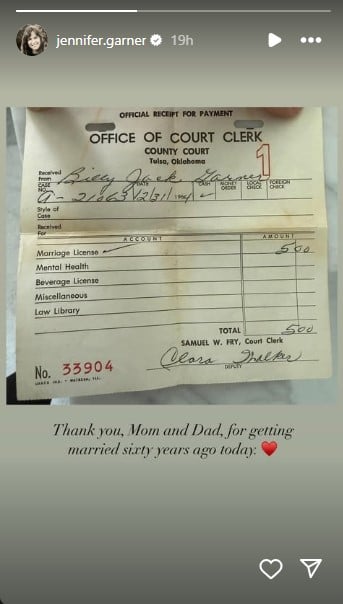 jennifer.garner 19h
OFFICIAL RECEIPT FOR PAYMENT
OFFICE OF COURT CLERK
COUNTY COURT
Tulsa, Oklahoma
1
Received From Billy Jack Garner
CASE NO. DATE CASH MONEY ORDER LOCAL CHECK FOREIGN CHECK
Style of Case
Received For
ACCOUNT AMOUNT
Marriage License 500
Mental Health
Beverage License
Miscellaneous
Law Library
TOTAL 500
SAMUEL W. FRY, Court Clerk
Clara
DEPUTY
No. 33904
Thank you, Mom and Dad, for getting
married sixty years ago today. ❤️